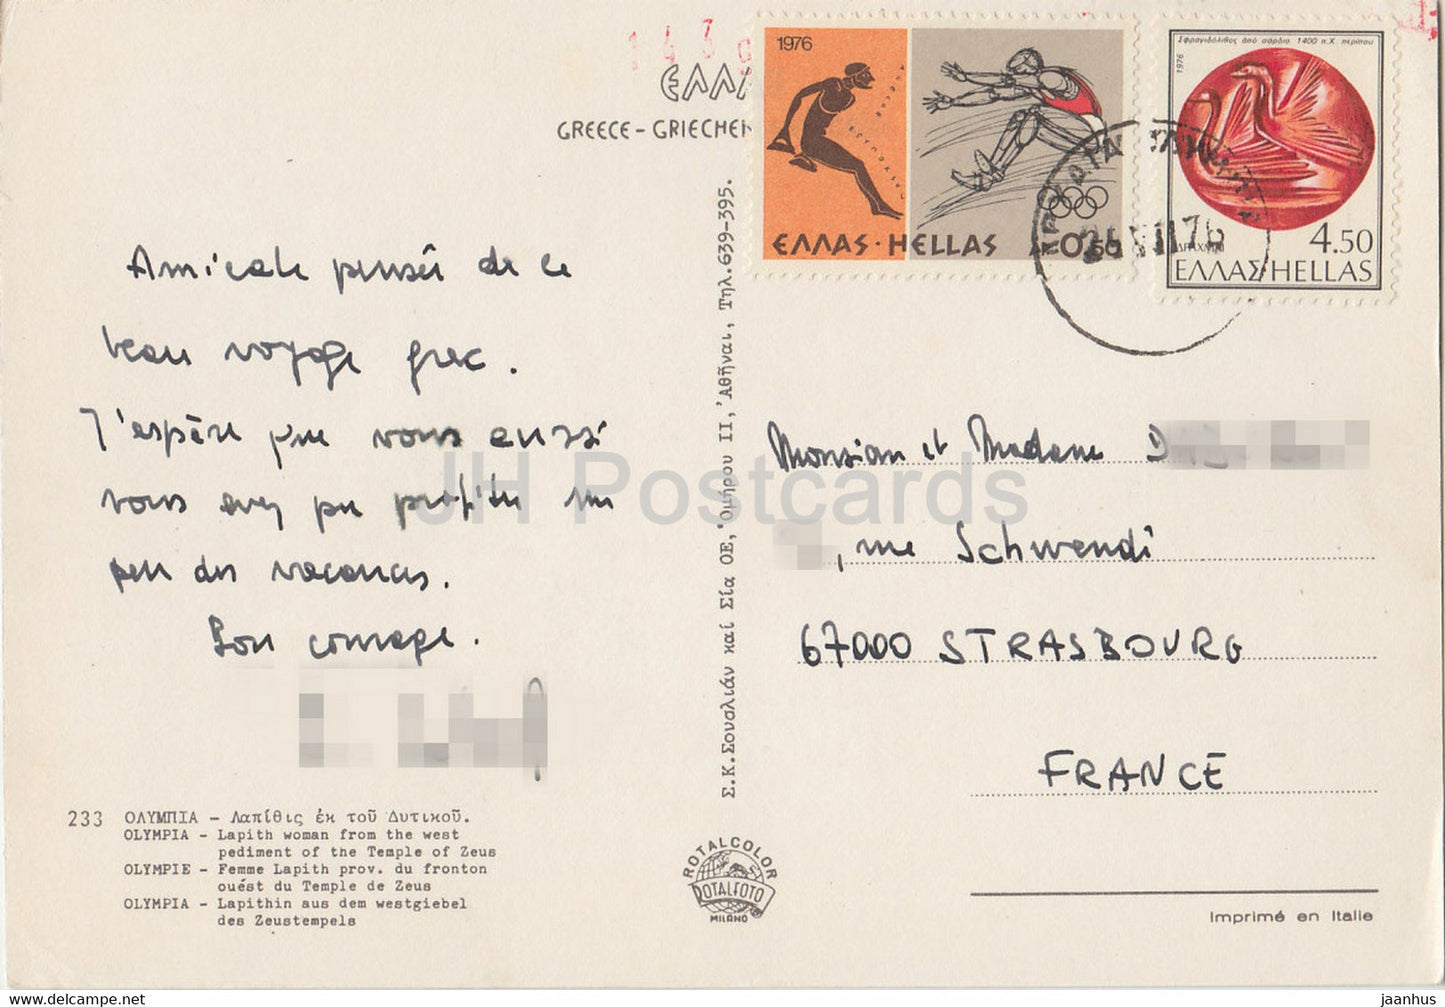 1 4 3
ΕΛΛΑ
GREECE - GRIECHEN
1976
ΕΛΛΑΣ · HELLAS
0.50
Σφραγιδόλιθος ἀπό σάρδιο 1400 π.Χ περίπου
1976
4.50
ΔΡΑΧΜΑΙ
ΕΛΛΑΣ HELLAS
VII 76
Amicale pensée de ce
beau voyage grec.
J'espère que vous aussi
vous avez pu profiter un
peu des vacances.
Bon courage.
Monsieur et Madame D
, rue Schwendi
67000 STRASBOURG
FRANCE
JH Postcards
Σ.Κ.Σουαλιάν καί Σία ΟΕ, Ὁμήρου II, Ἀθῆναι, Τηλ.639-395.
233 ΟΛΥΜΠΙΑ - Λαπίθις ἐκ τοῦ Δυτικοῦ.
OLYMPIA - Lapith woman from the west
pediment of the Temple of Zeus
OLYMPIE - Femme Lapith prov. du fronton
ouést du Temple de Zeus
OLYMPIA - Lapithin aus dem westgiebel
des Zeustempels
ROTALCOLOR
ROTALFOTO
MILANO
Imprimé en Italie
www.hippostcard.com
jaanhus @ eBay